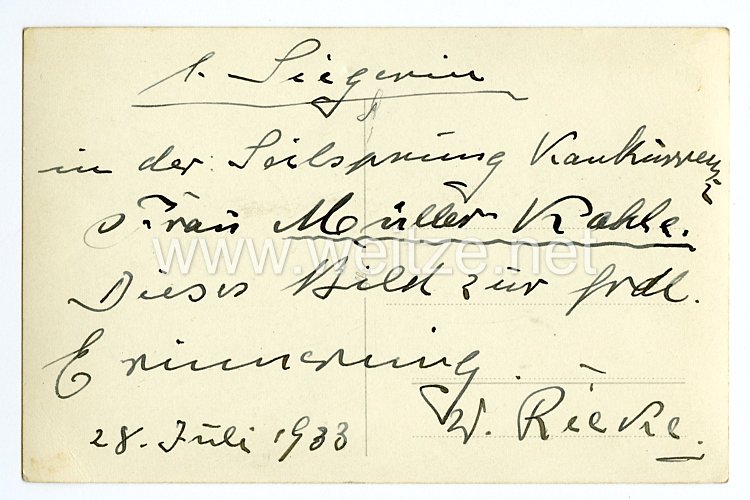 1. Siegerin
in der Seilsprung Konkurrenz
Frau Müller Kahle.
www.weitze.net
Dieses Bild zur frdl.
Erinnerung.
W. Riecke.
28. Juli 1933